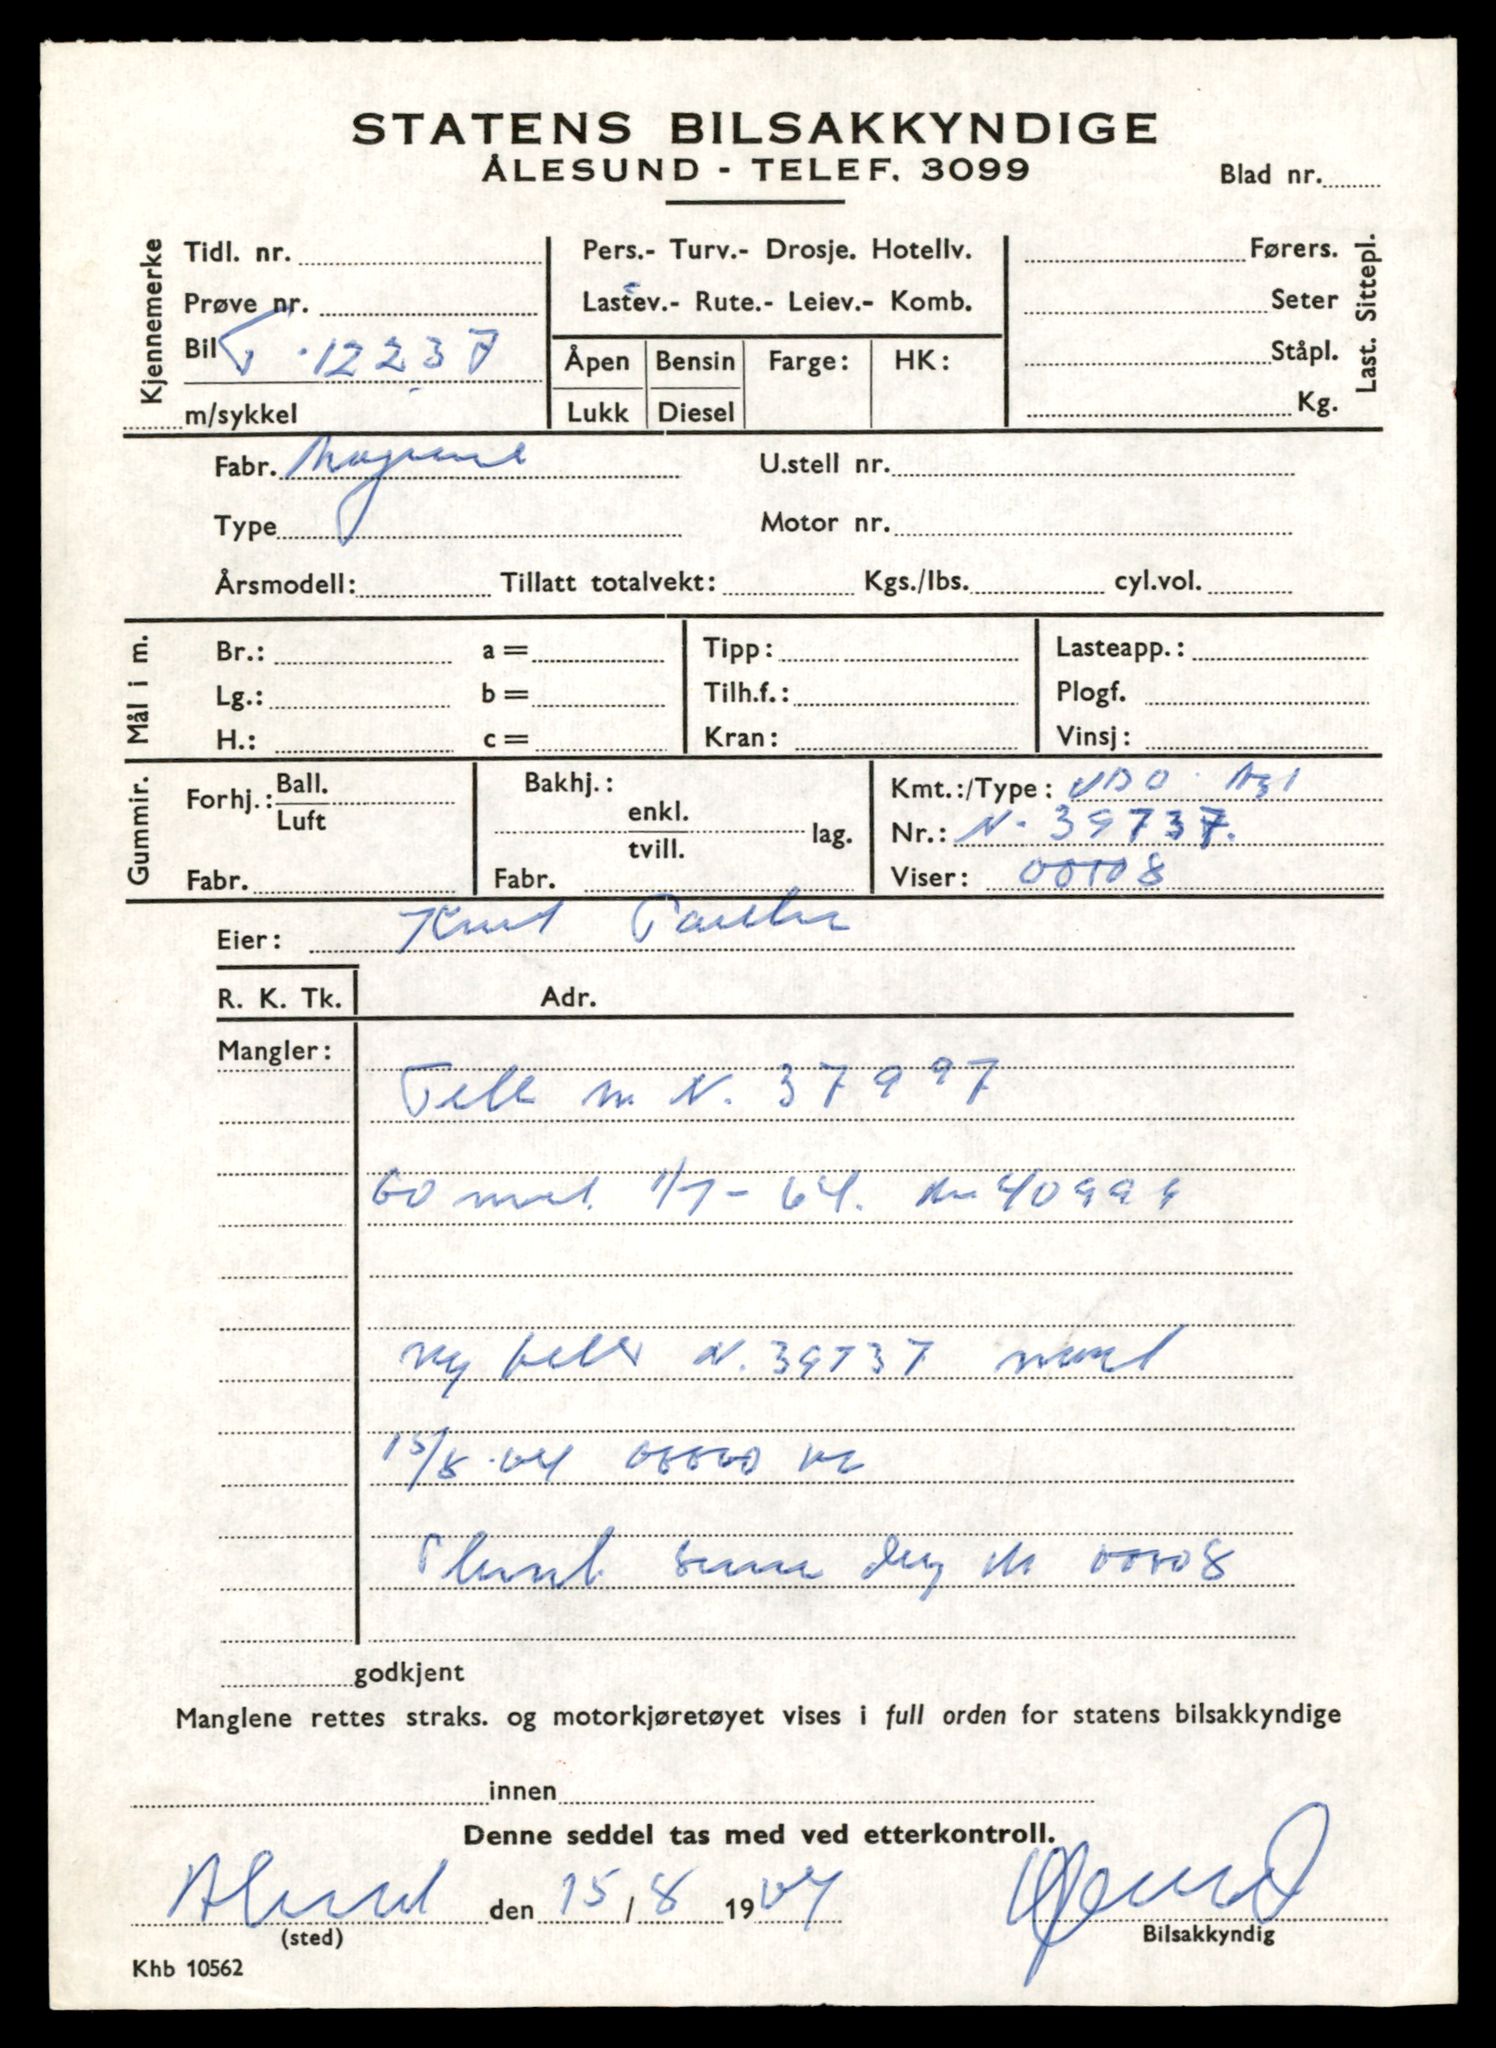 STATENS BILSAKKYNDIGE
ÅLESUND - TELEF. 3099
Blad nr.
Kjennemerke
Tidl. nr.
Prøve nr.
Bil T-12237
m/sykkel
Pers.- Turv.- Drosje. Hotellv.
Lastev.- Rute.- Leiev.- Komb.
Åpen Bensin Farge: HK:
Lukk Diesel
Førers.
Seter
Ståpl.
Kg.
Last. Sittepl.
Fabr.
U.stell nr.
Type
Motor nr.
Årsmodell: Tillatt totalvekt: Kgs./lbs. cyl.vol.
Mål i m.
Br.: a = Tipp: Lasteapp.:
Lg.: b = Tilh.f.: Plogf.
H.: c = Kran: Vinsj:
Gummir.
Forhj.: Ball.
Luft
Fabr.
Bakhj.:
enkl.
tvill. lag.
Fabr.
Kmt.:/Type: VDO
Nr.: N. 39737.
Viser: 00008
Eier: Knut
R. K. Tk. Adr.
Mangler:
Tell m N. 37997
60 1/7-64. 40999
Ny teller N. 39737
15/8-64 00000
Plomb. samme dag 00008
godkjent
Manglene rettes straks. og motorkjøretøyet vises i full orden for statens bilsakkyndige
innen
Denne seddel tas med ved etterkontroll.
Ålesund den 15/8 1964
(sted)
Bilsakkyndig
Khb 10562